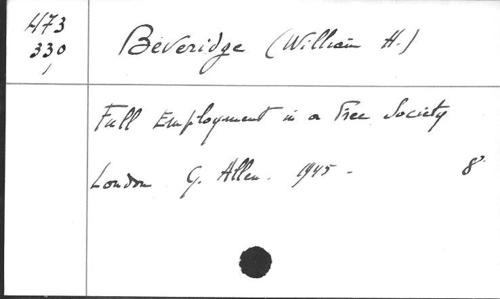 473
330
Beveridge (William H.)
Full Employment in a Free Society
London G. Allen. 1945 - 8°